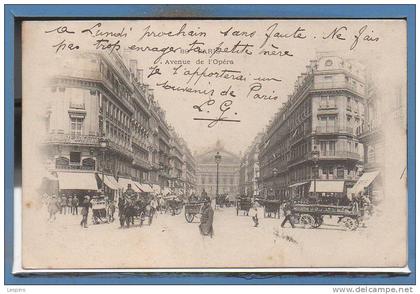 à Lundi prochain sans faute. Ne fais
pas trop enrager ta petite mère
Avenue de l'Opéra
Je t'apporterai un
souvenir de Paris
L. G.
www.delcampe.net